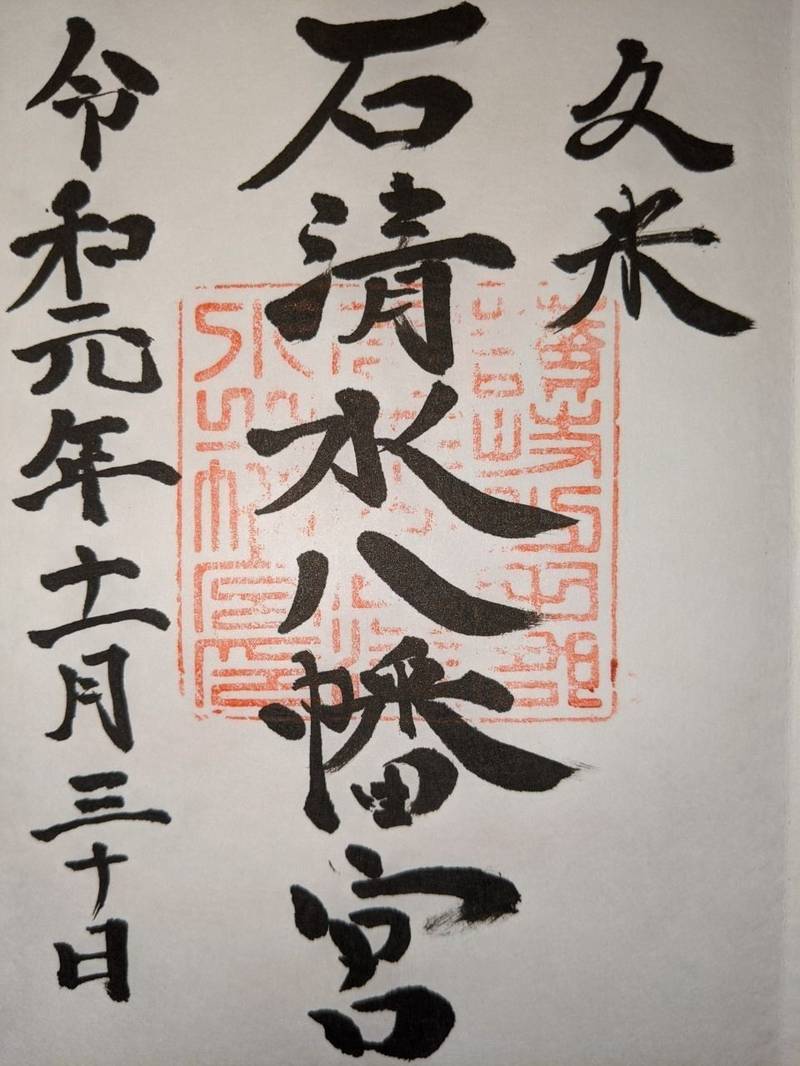 久米
石清水八幡宮
令和元年十一月三十日